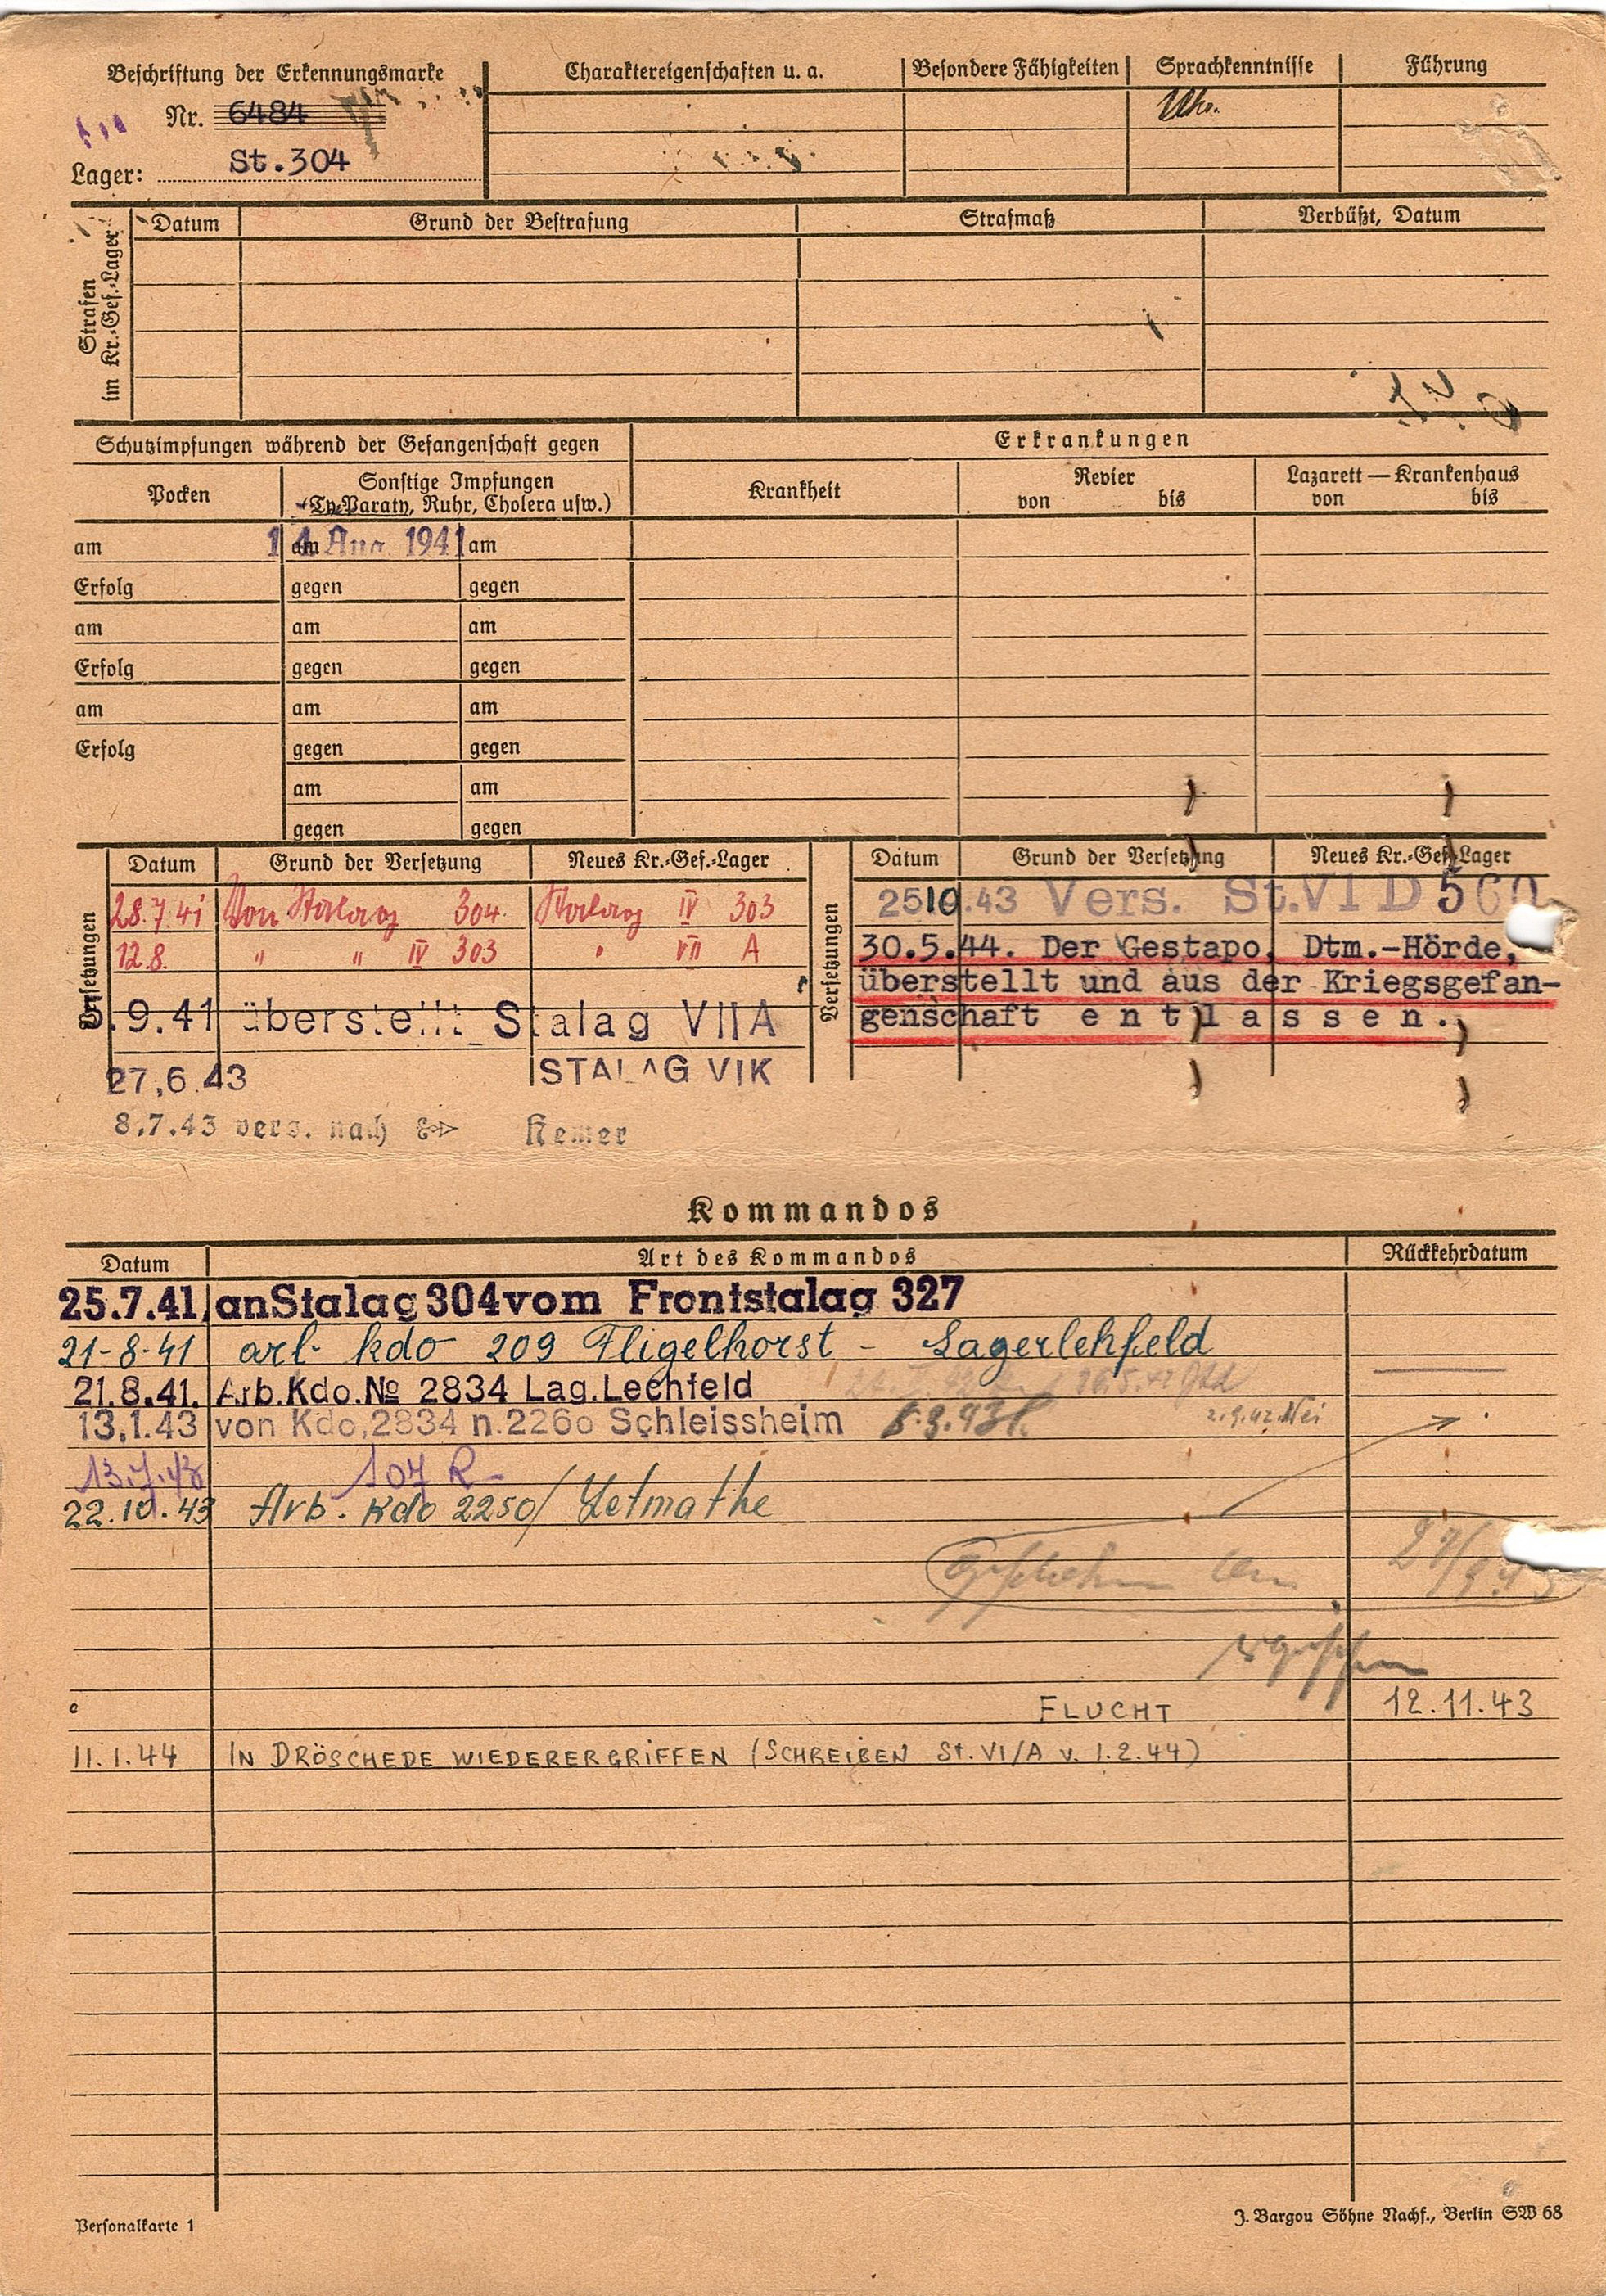 Beschriftung der Erkennungsmarke
Nr. 6484
Lager: St.304
Charaktereigenschaften u. a.
Besondere Fähigkeiten
Sprachkenntnisse
Führung
Ukr.
Strafen im Kr.-Gef.-Lager
Datum Grund der Bestrafung Strafmaß Verbüßt, Datum
Schutzimpfungen während der Gefangenschaft gegen
Erkrankungen
Pocken
Sonstige Impfungen
(Ty.-Paraty, Ruhr, Cholera usw.)
Krankheit
Revier
von bis
Lazarett — Krankenhaus
von bis
am 14 Aug. 1941 am am
Erfolg gegen gegen
am am am
Erfolg gegen gegen
am am am
Erfolg gegen gegen
am am
gegen gegen
Versetzungen
Datum Grund der Versetzung Neues Kr.-Gef.-Lager
28.7.41 Von Stalag 304. Stalag IV 303
12.8. " " IV 303 " VII A
5.9.41 überstellt Stalag VIIA
27.6.43 STALAG VIK
8.7.43 vers. nach Hemer
Versetzungen
Datum Grund der Versetzung Neues Kr.-Gef.-Lager
2510.43 Vers. St.VI D 560
30.5.44. Der Gestapo, Dtm.-Hörde,
überstellt und aus der Kriegsgefan-
genschaft entlassen.
Kommandos
Datum Art des Kommandos Rückkehrdatum
25.7.41 an Stalag 304 vom Frontstalag 327
21-8-41 arb. kdo 209 Fligelhorst - Lagerlehfeld
21.8.41. Arb.Kdo.No 2834 Lag.Lechfeld
13.1.43 von Kdo.2834 n.2260 Schleissheim
13.7.43 107 R
22.10.43 Arb. Kdo 2250/ Letmathe
FLUCHT 12.11.43
11.1.44 IN DRÖSCHEDE WIEDERERGRIFFEN (SCHREIBEN St. VI/A v. 1.2.44)
Personalkarte 1
J. Bargou Söhne Nachf., Berlin SW 68